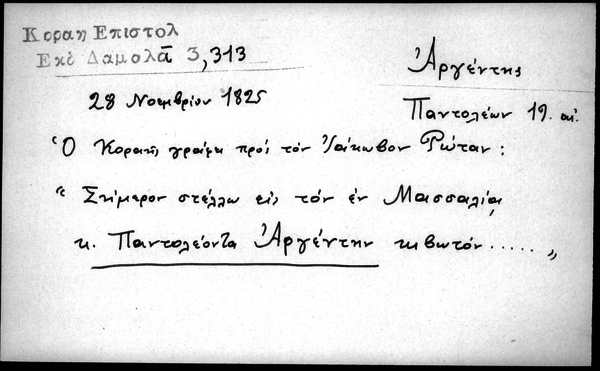 Κοραη Επιστολ
Εκδ Δαμολᾶ 3,313
Ἀργέντης
28 Νοεμβρίου 1825
Παντολέων 19. αἰ.
Ὁ Κοραῆς γράφει πρὸς τὸν Ἰάκωβον Ρώταν:
“ Σήμερον στέλλω εἰς τὸν ἐν Μασσαλίᾳ
κ. Παντολέοντα Ἀργέντην κιβωτόν ..... „